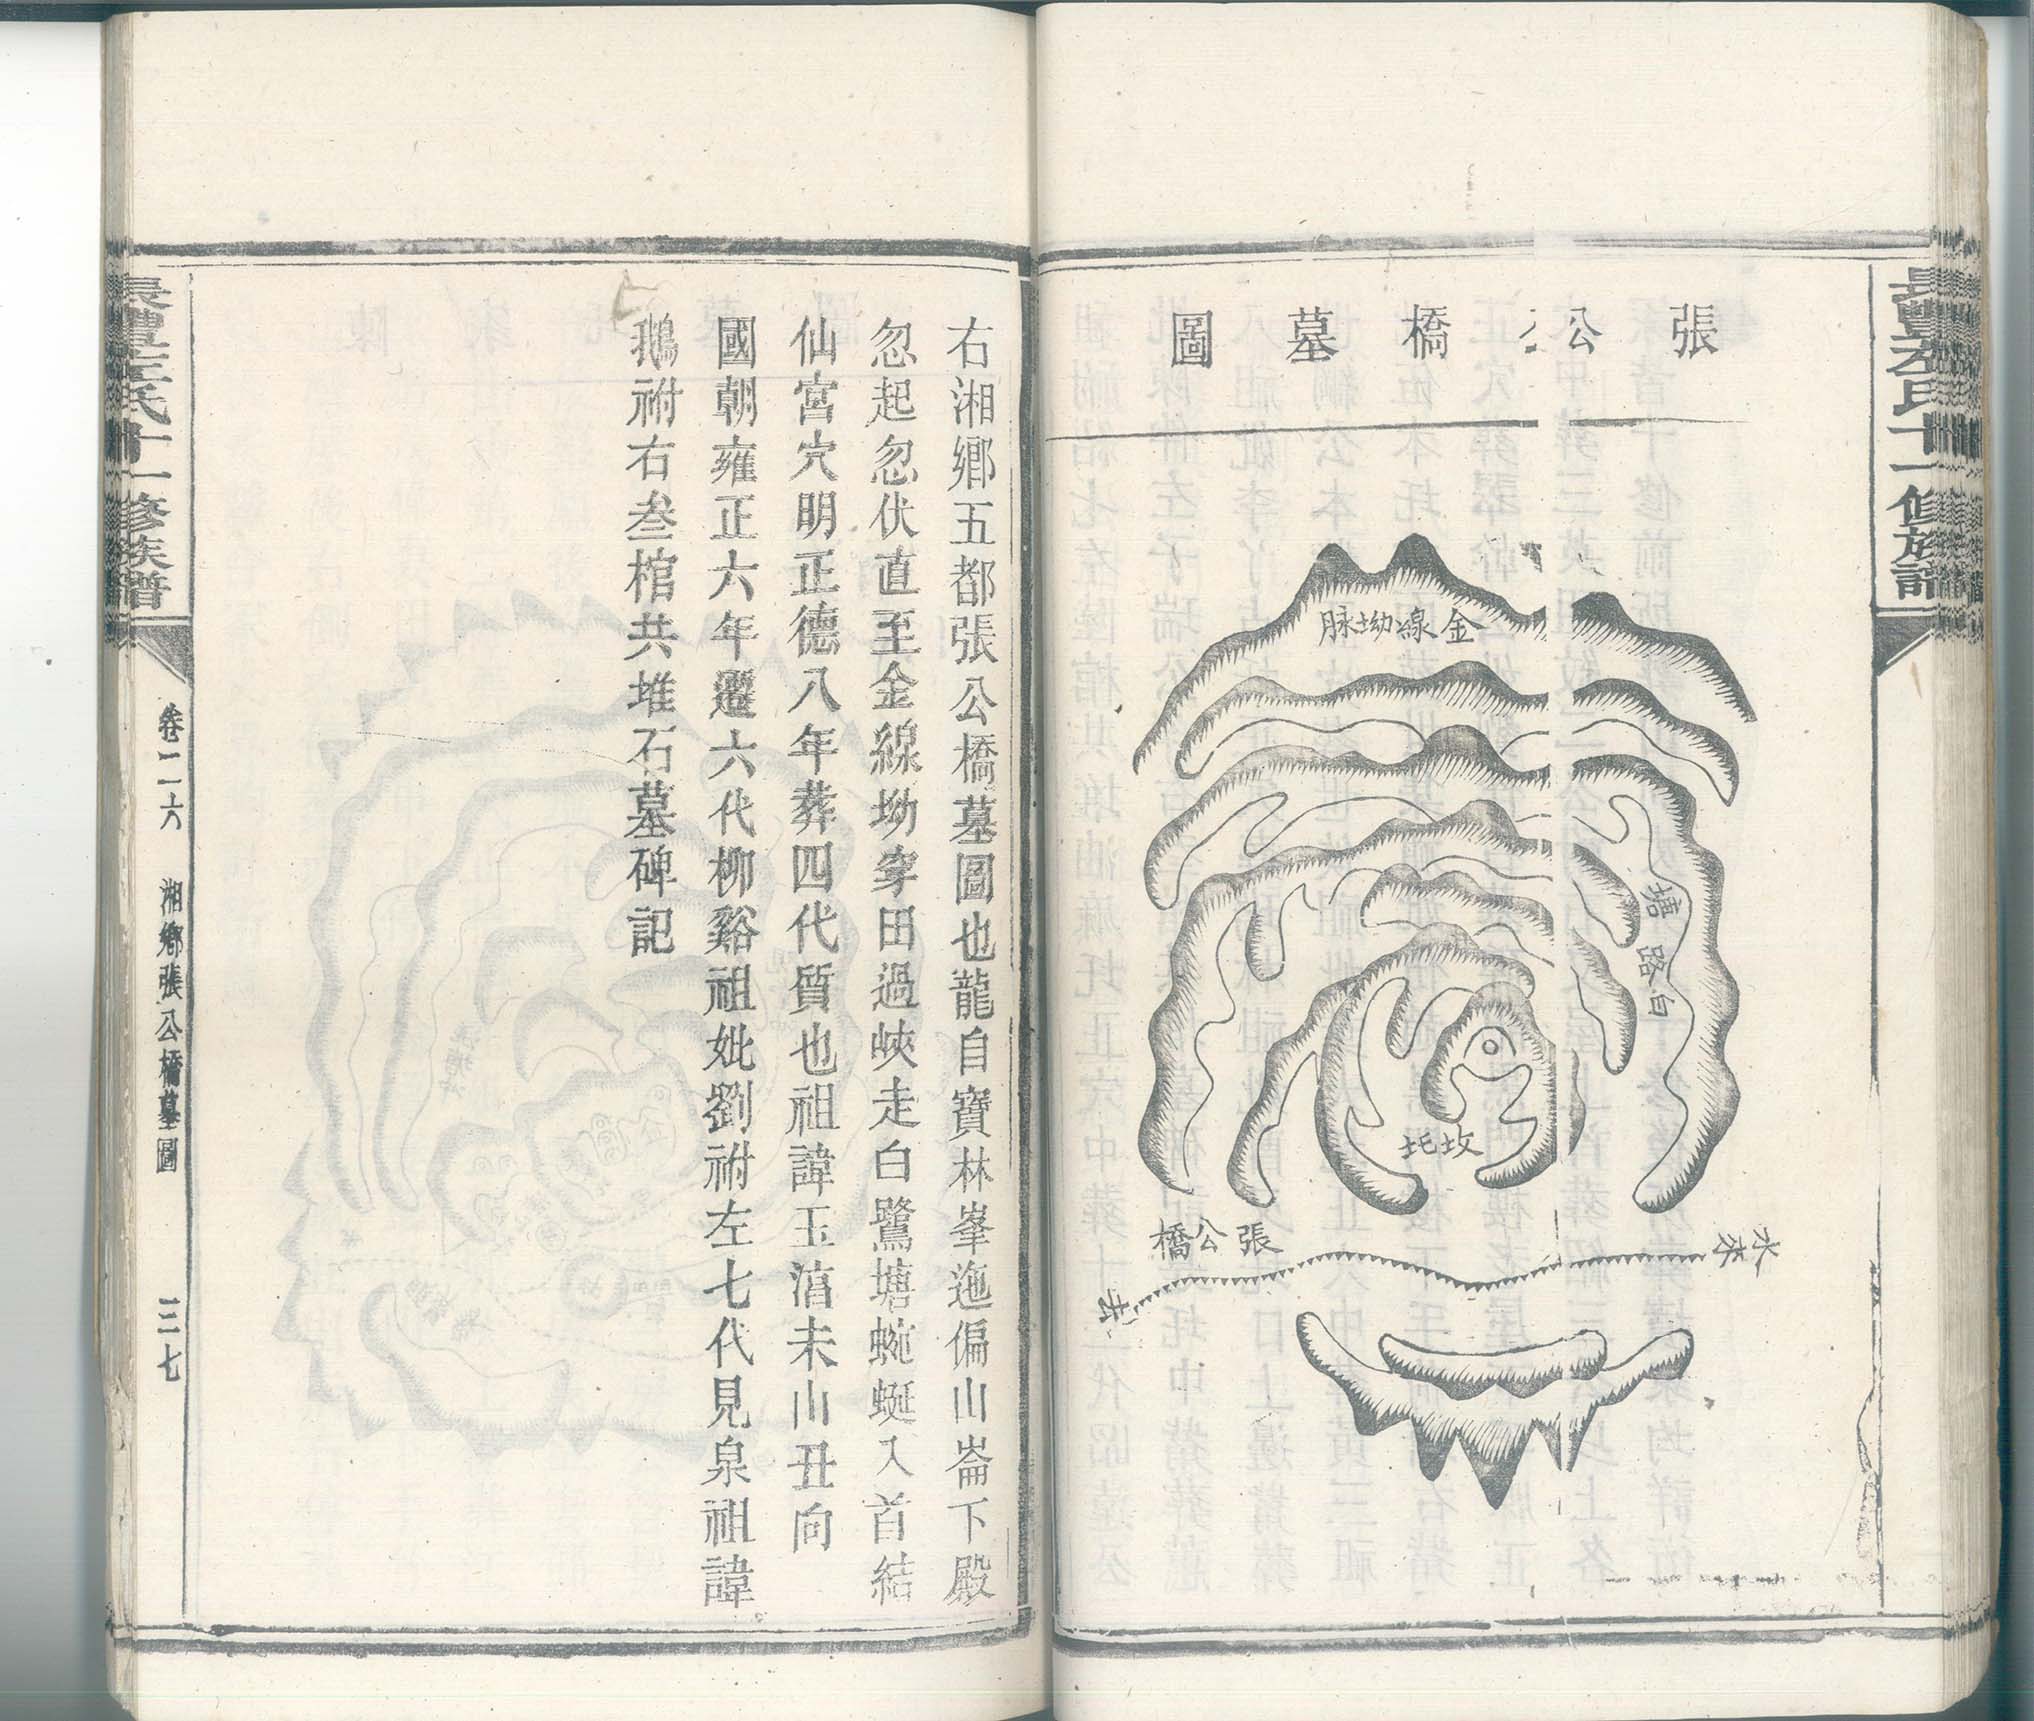 長豐左氏十一修族譜
張公橋墓圖
金線坳脉
白路塘
坟坵
張公橋
水來
水去
右湘鄉五都張公橋墓圖也龍自寶林峯迤偏山崙下殿
忽起忽伏直至金線坳穿田過峽走白鷺塘蜿蜒入首結
仙宮穴明正德八年葬四代質也祖諱玉湇未山丑向
國朝雍正六年遷六代柳谿祖妣劉祔左七代見泉祖諱
鵝祔右叁棺共堆石墓碑記
長豐左氏十一修族譜
卷二六
湘鄉張公橋墓圖
三七